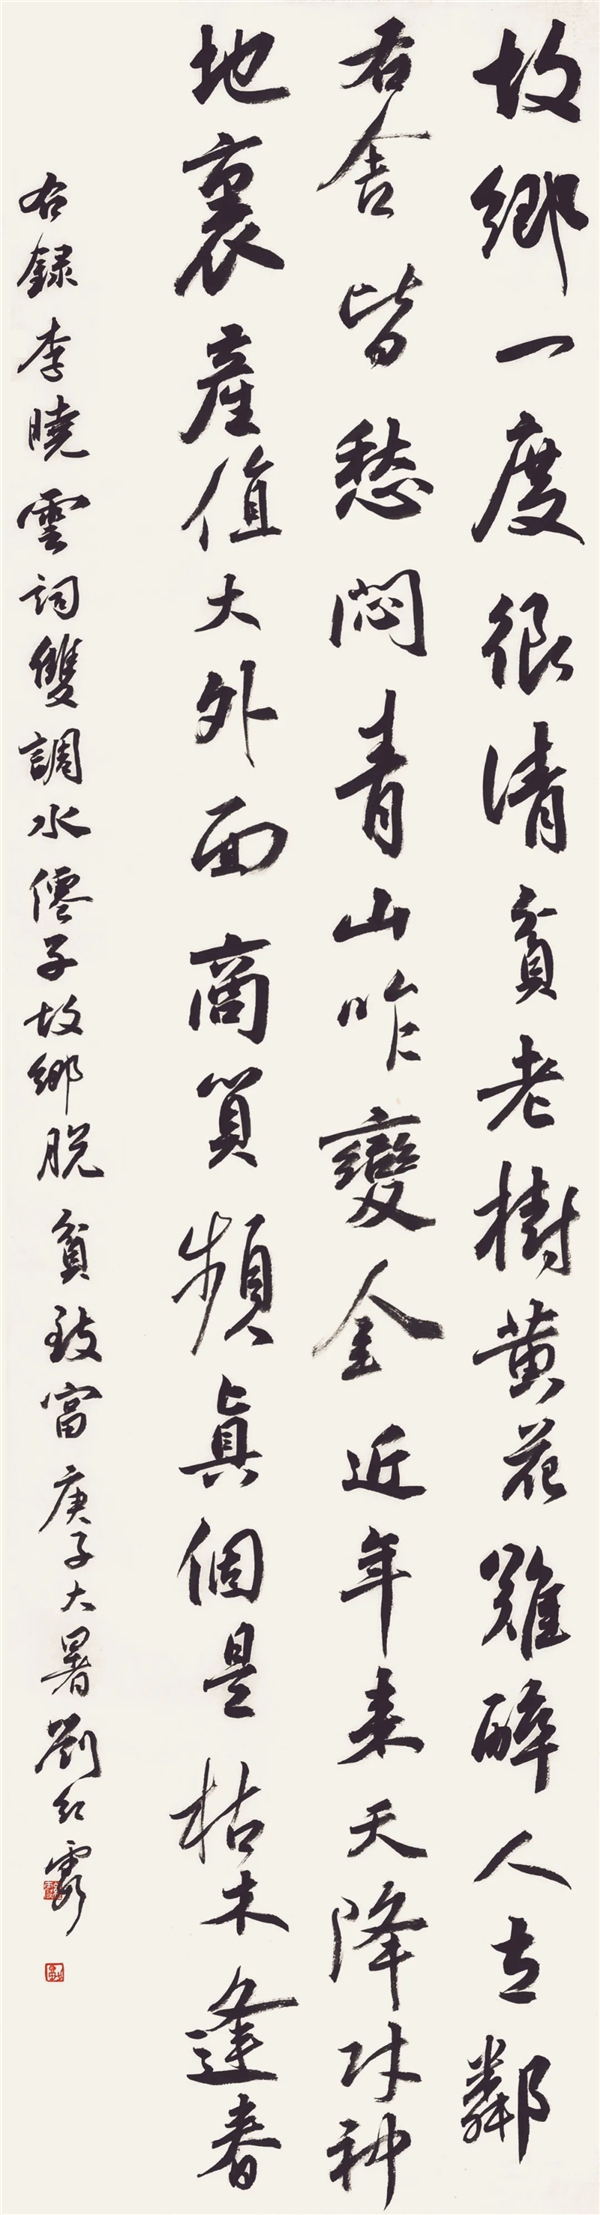 故鄉一度很清貧老樹黃花難醉人左鄰
右舍皆愁悶青山咋變金近年來天降財神
地裏產值大外面商貿頻真個是枯木逢春
右錄李曉雲詞雙調水僊子故鄉脫貧致富庚子大暑劉紅霞